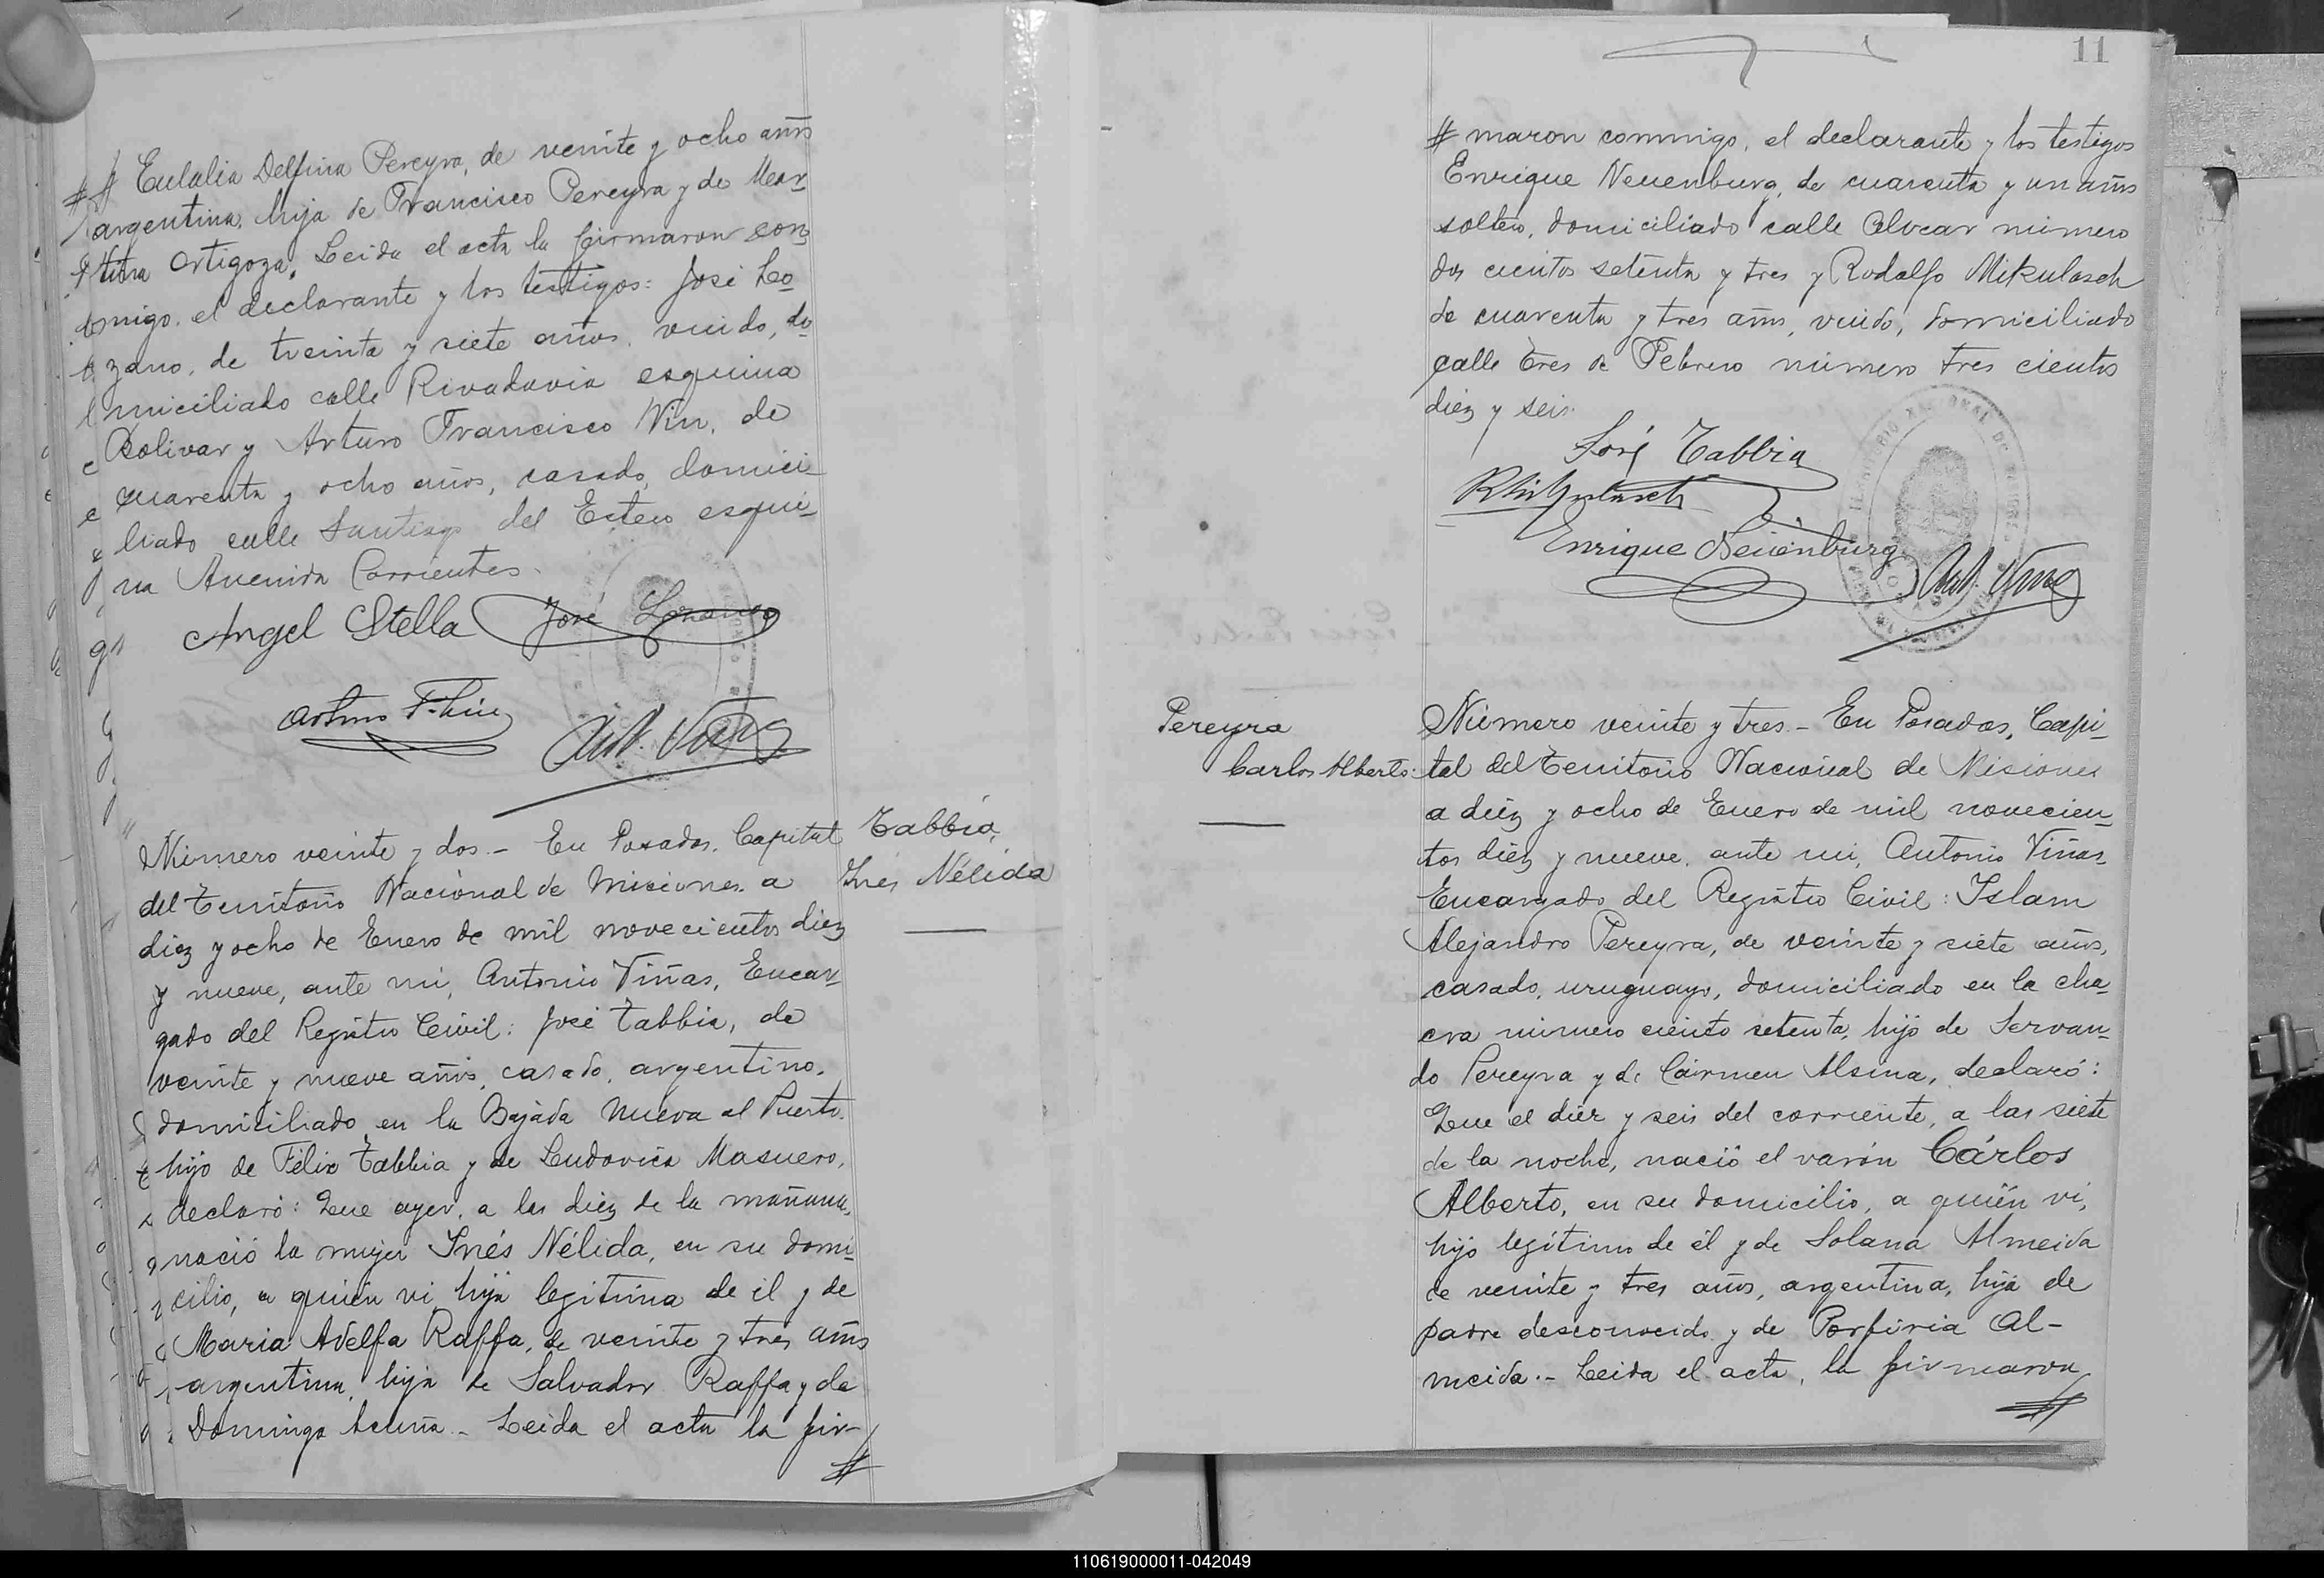 # Eulalia Delfina Pereyra, de veinte y ocho años
argentina, hija de Francisco Pereyra y de Mar-
tina Ortigoza. Leida el acta la firmaron con-
migo, el declarante y los testigos: José Lo-
zano, de treinta y siete años, viudo, do-
miciliado calle Rivadavia esquina
Bolivar y Arturo Francisco Nin, de
cuarenta y ocho años, casado, domici-
liado calle Santiago del Estero esqui-
na Avenida Corrientes.
Angel Stella José Lozano
Arturo F. Nin
Ant. Viñas
Tabbia,
Inés Nélida
Número veinte y dos.- En Posadas, Capital
del Territorio Nacional de Misiones a
diez y ocho de Enero de mil novecientos diez
y nueve, ante mi, Antonio Viñas, Encar-
gado del Registro Civil: José Tabbia, de
veinte y nueve años, casado, argentino,
domiciliado en la Bajada Nueva al Puerto,
hijo de Félix Tabbia y de Ludovica Masuero,
declaró: Que ayer, a las diez de la mañana,
nació la mujer Inés Nélida, en su domi-
cilio, a quién vi, hija legitima de él y de
Maria Adelfa Raffa, de veinte y tres años
argentina, hija de Salvador Raffa y de
Dominga Acuña.- Leida el acta la fir-
#
11
# maron conmigo, el declarante y los testigos
Enrique Neuenburg, de cuarenta y un años
soltero, domiciliado calle Alvear número
dos cientos setenta y tres y Rodolfo Mikulasch
de cuarenta y tres años, viudo, domiciliado
calle Tres de Febrero número tres cientos
diez y seis.
José Tabbia
R Mikulasch
Enrique Neuenburg
Ant. Viñas
Pereyra
Carlos Alberto.
Número veinte y tres.- En Posadas, Capi-
tal del Territorio Nacional de Misiones
a diez y ocho de Enero de mil novecien-
tos diez y nueve, ante mi, Antonio Viñas
Encargado del Registro Civil: Islam
Alejandro Pereyra, de veinte y siete años,
casado, uruguayo, domiciliado en la cha-
cra número ciento setenta, hijo de Servan-
do Pereyra y de Cármen Alsina, declaró:
Que el diez y seis del corriente, a las siete
de la noche, nació el varón Cárlos
Alberto, en su domicilio, a quién vi,
hijo legítimo de él y de Solana Almeida
de veinte y tres años, argentina, hija de
padre desconocido y de Porfiria Al-
meida.- Leida el acta, la firmaron
#
110619000011-042049